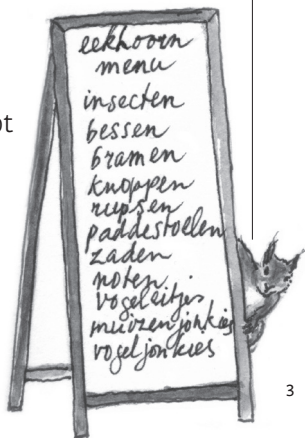 eekhoorn
menu
insecten
bessen
bramen
knoppen
rupsen
paddestoelen
zaden
noten
vogeleitjes
muizenjonkies
vogeljonkies
3